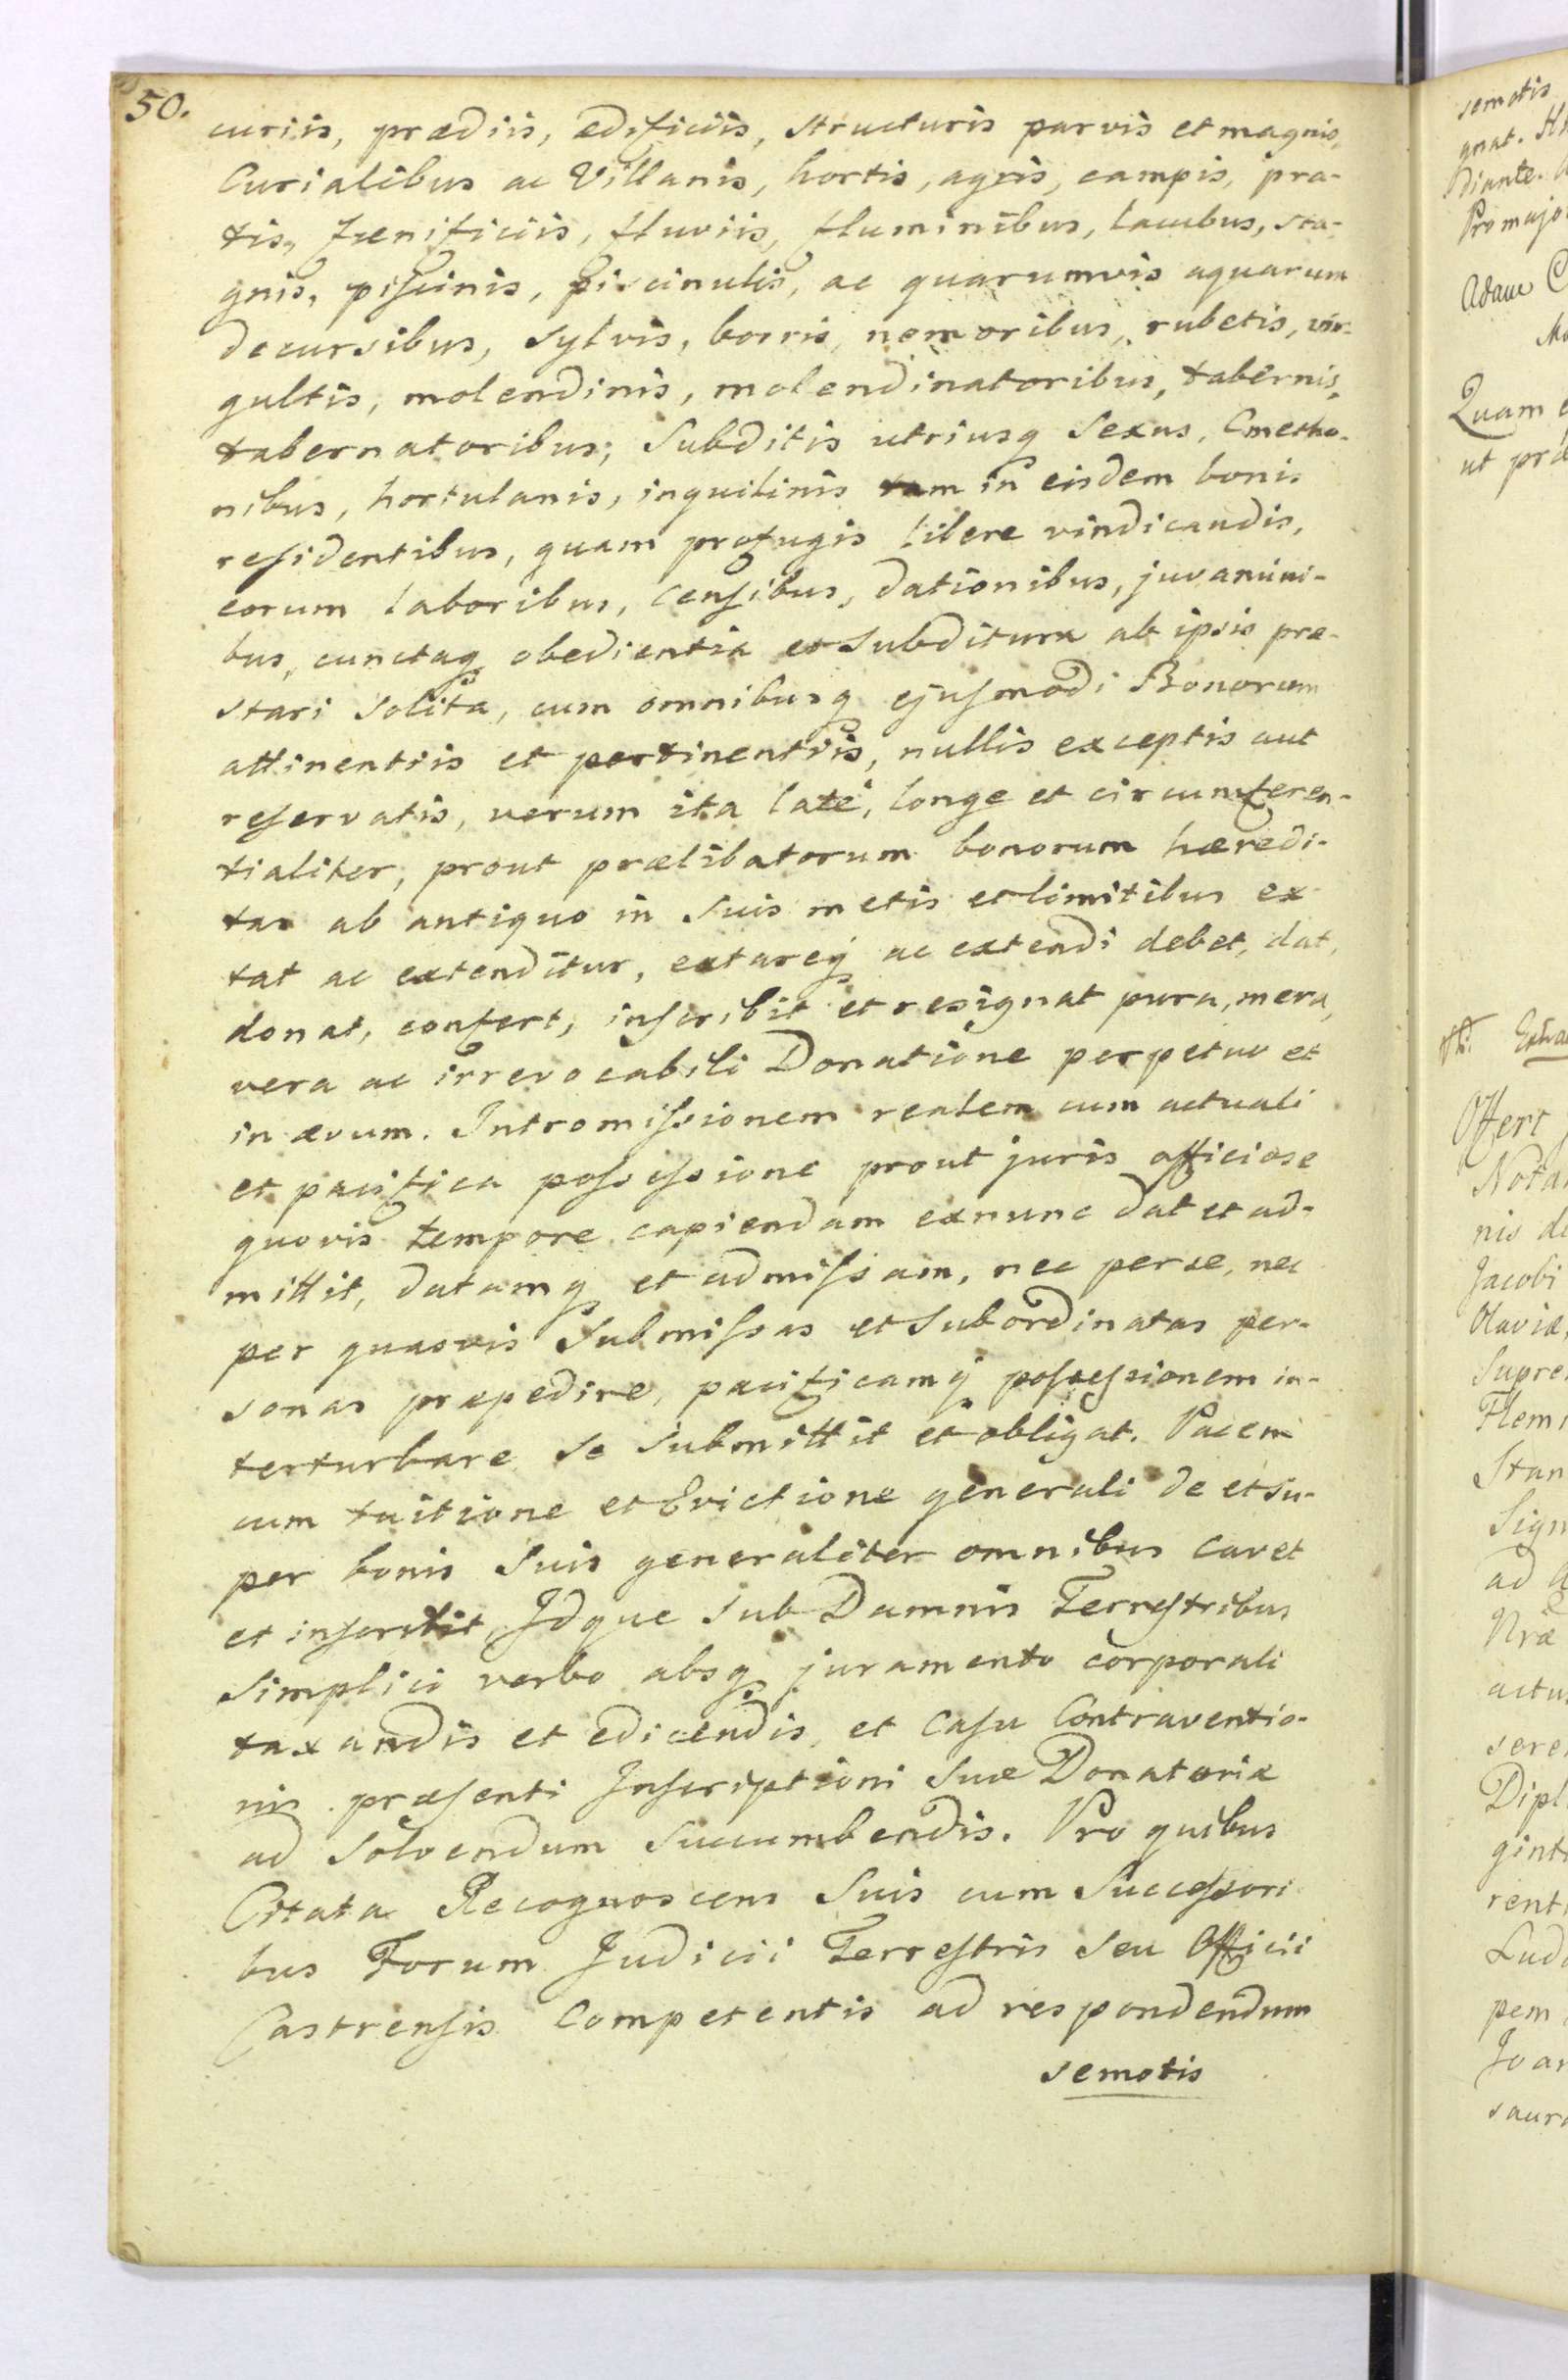 50.
curiis, prædiis, ædificiis, structuris parvis et magnis,
Curialibus ac Villanis, hortis, agris, campis, pra-
tis, fænificiis, fluviis, fluminibus, lacubus, sta-
gnis, piscinis, piscinulis, ac quarumvis aquarum
decursibus, sylvis, borris, nemoribus, rubetis, vir-
gultis, molendinis, molendinatoribus, tabernis,
tabernatoribus; Subditis utriusq Sexus, Cmetho-
nibus, hortulanis, inquilinis tam in eisdem bonis
residentibus, quam profugis libere vindicandis,
eorum laboribus, censibus, dationibus, juvamini-
bus, cunctaq obedientia et Subditura ab ipsis præ-
stari solita, cum omnibusq ejusmodi Bonorum
attinentiis et pertinentiis, nullis exceptis aut
reservatis, verum ita late, longe et circumferen-
tialiter, prout prælibatorum bonorum hæredi-
tas ab antiquo in suis metis et limitibus ex
tat ac extenditur, extareq ac extendi debet, dat,
donat, confert, inscribit et resignat pura, mera,
vera ac irrevocabili Donatione perpetuo et
in ævum. Intromissionem realem cum actuali
et pacifica possessione prout juris officiose
quovis tempore capiendam exnunc dat et ad-
mittit, datamq et admissam, nec per se, nec
per quasvis Submissas et Subordinatas per-
sonas præpedire, pacificamq possessionem in-
terturbare se submittit et obligat. Pacem
cum tuitione et Evictione generali de et su-
per bonis Suis generaliter omnibus cavet
et inscribit, Idque sub Damnis Terrestribus
simplici verbo absq juramento corporali
taxandis et edicendis, et casu Contraventio-
nis præsenti Inscriptioni Suæ Donatoriæ
ad solvendum succumbendis. Pro quibus
Citata Recognoscens Suis cum Successori
bus Forum Judicii Terrestris seu Officii
Castrensis Competentis ad respondendum
semotis
semotis
gnat.
diante.
Pro majo
Adam C
Quam e
ut præ
Offert
Nota
nis de
Jacobi
Supre
Flemi
Stan
Sign
ad
Nræ
actu
sere
Dipl
gint
rent
Ludo
pem
Joan
saur